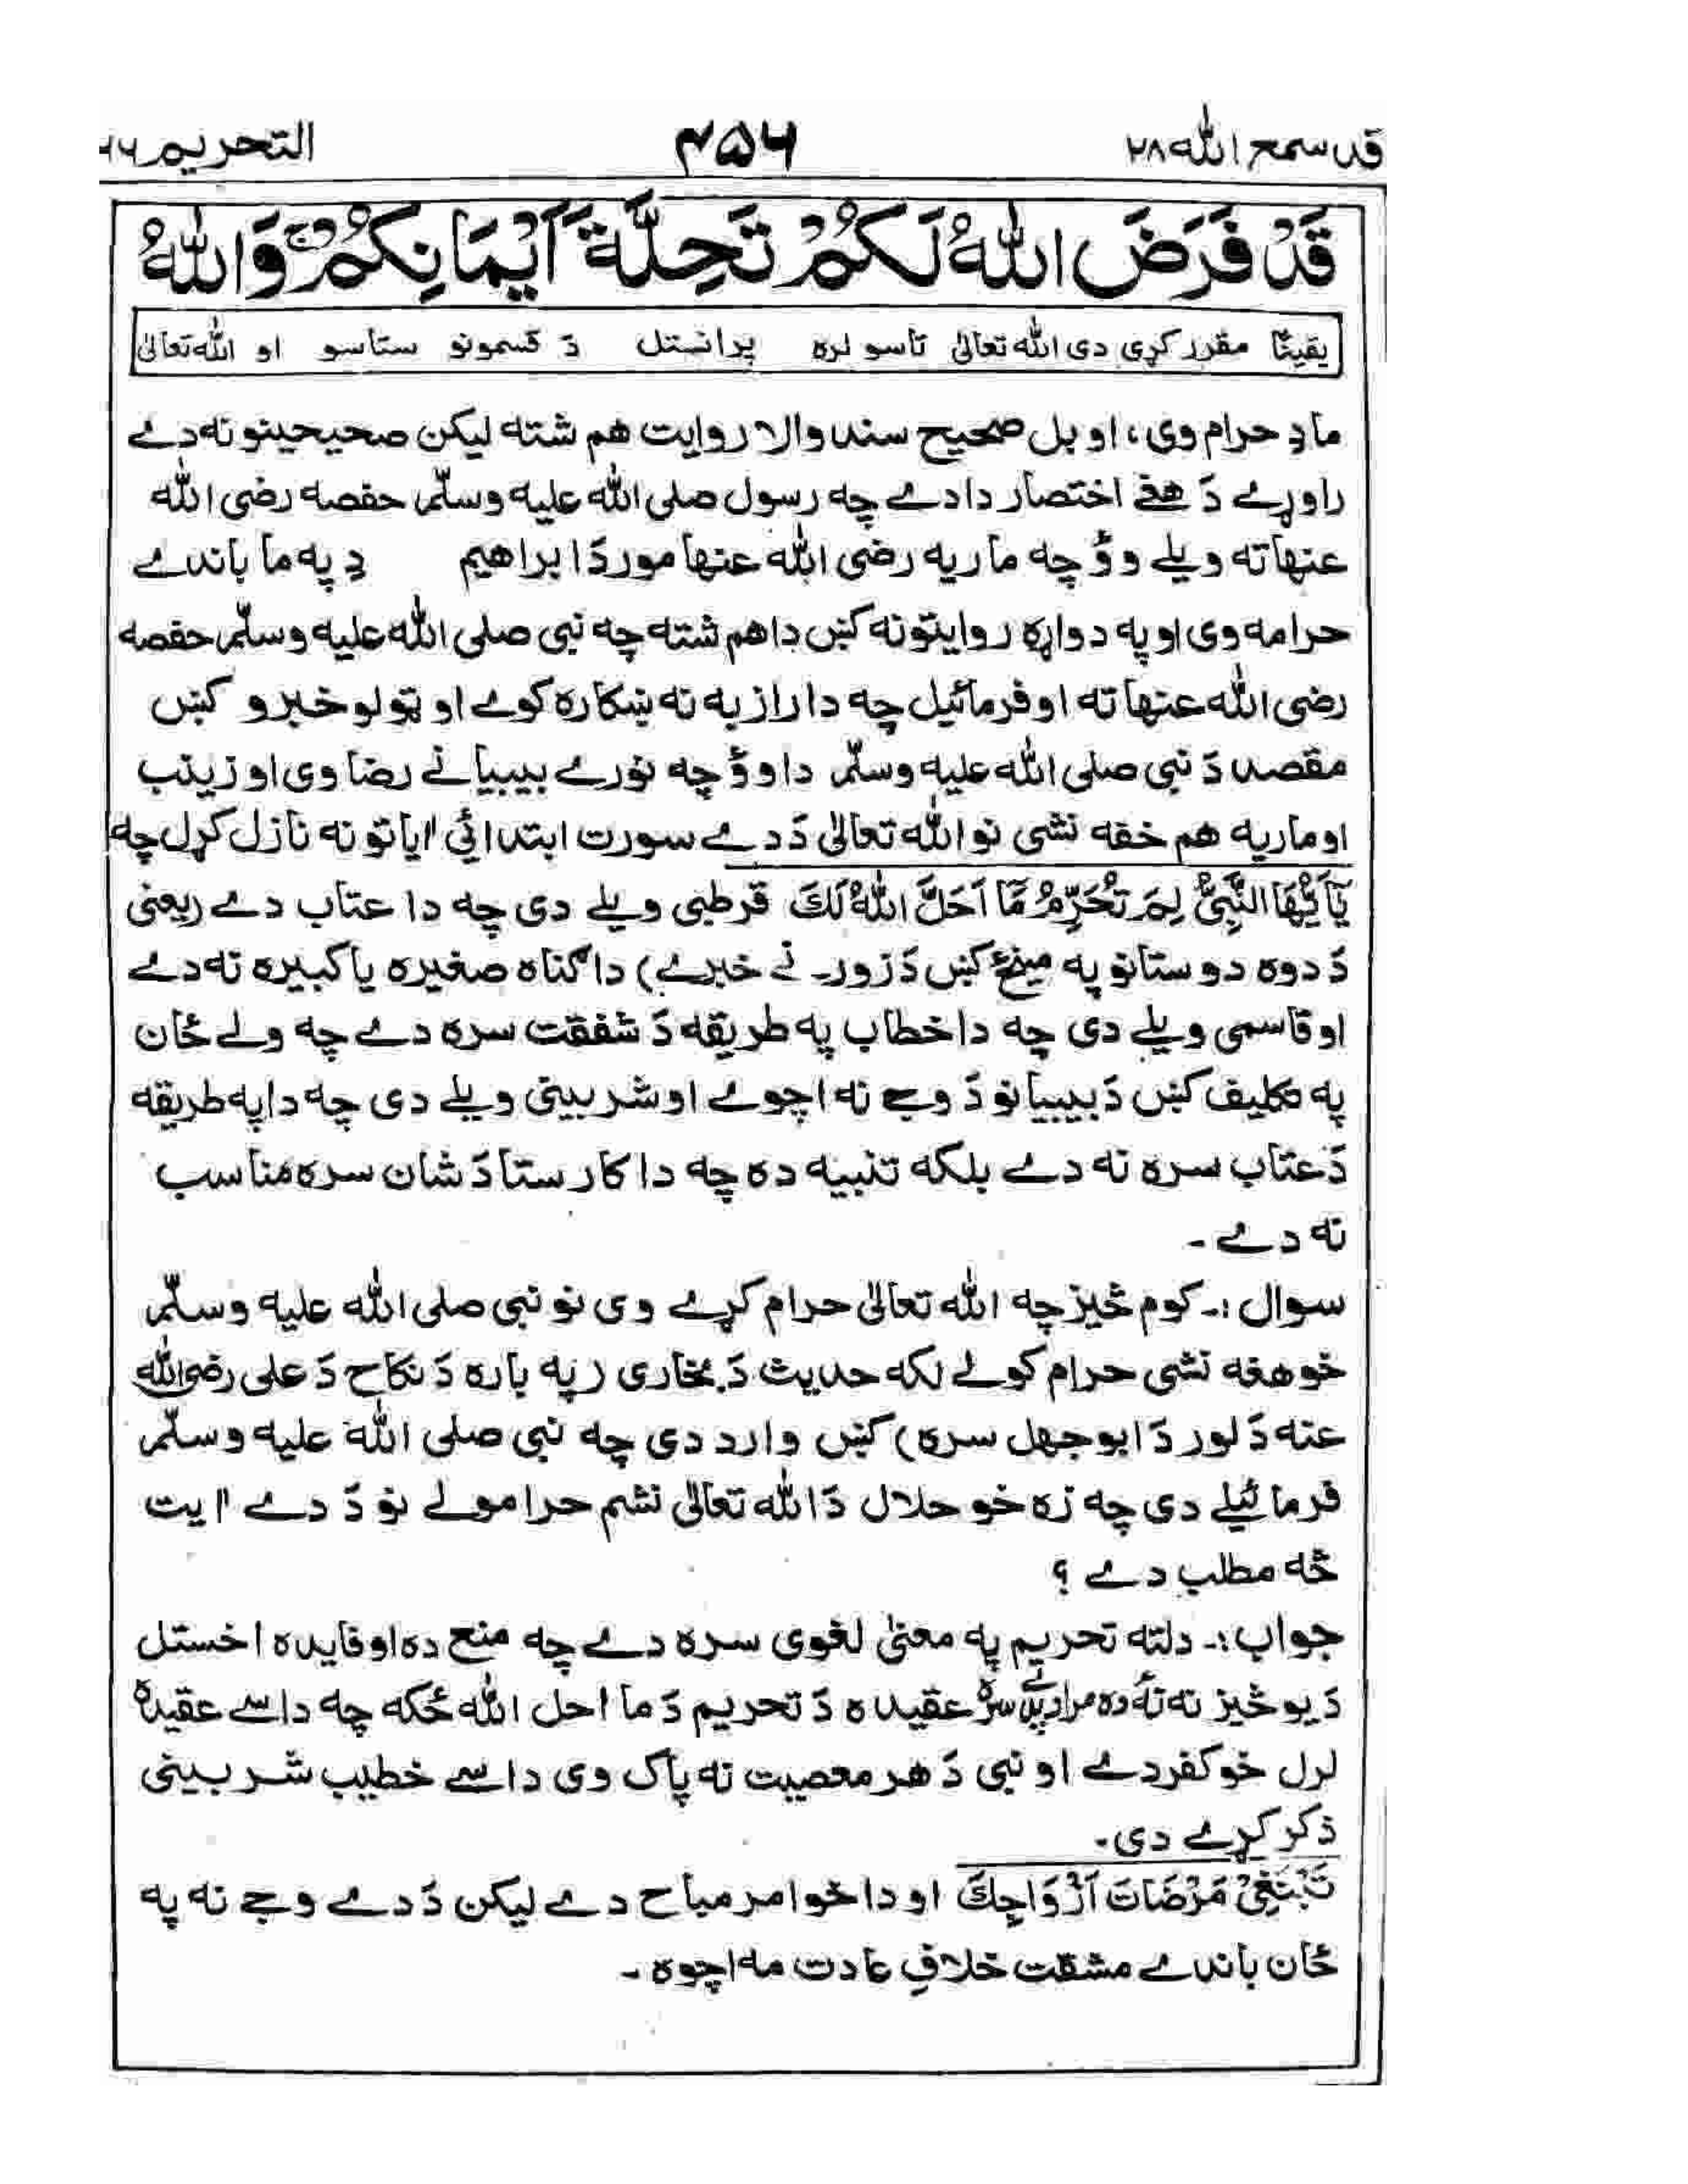 قد سمع الله ۲۸ ۴۵۶ التحریم ۶۶
قَدْ فَرَضَ اللّٰهُ لَكُمْ تَحِلَّةَ اَيْمَانِكُمْ ۚ وَاللّٰهُ
یقینًا مقرر کړی دی الله تعالیٰ تاسو لره پرانستل دَ قسمونو ستاسو او الله تعالیٰ
ماډِ حرام وی، او بل صحیح سند والا روایت هم شته لیکن صحیحینو نه دے
راوړے دَ هغے اختصار دا دے چه رسول صلی الله علیه وسلّم حفصه رضی الله
عنها ته ویلے وؤ چه ماریه رضی الله عنها مور دَ ابراهیم دِ په ما باندے
حرامه وی او په دواړه روایتونه کښ دا هم شته چه نبی صلی الله علیه وسلّم حفصه
رضی الله عنها ته اوفرمائیل چه دا راز به نه ښکاره کوے او ټولو خبرو کښ
مقصد دَ نبی صلی الله علیه وسلّم دا وؤ چه نورے بیبیانے رضا وی او زینب
او ماریه هم خفه نشی نو الله تعالیٰ دَ دے سورت ابتدائی اٰیاتونه نازل کړل چه
يٰٓاَيُّهَا النَّبِيُّ لِمَ تُحَرِّمُ مَّا اَحَلَّ اللّٰهُ لَكَ قرطبی ویلے دی چه دا عتاب دے (یعنی
دَ دوه دوستانو په مینځ کښ دَ زورنے خبرے) دا ګناه صغیره یا کبیره نه دے
او قاسمی ویلے دی چه دا خطاب په طریقه دَ شفقت سره دے چه ولے ځان
په تکلیف کښ دَ بیبیانو دَ وجے نه اچوے او شربینی ویلے دی چه دا په طریقه
دَ عتاب سره نه دے بلکه تنبیه ده چه دا کار ستا دَ شان سره مناسب
نه دے ـ
سوال :ـ کوم څیز چه الله تعالیٰ حرام کړے وی نو نبی صلی الله علیه وسلّم
خو هغه نشی حرام کولے لکه حدیث دَ بخاری (په باره دَ نکاح دَ علی رضی الله
عنه دَ لور دَ ابوجهل سره) کښ وارد دی چه نبی صلی الله علیه وسلّم
فرمائیلے دی چه زه خو حلال دَ الله تعالیٰ نشم حرامولے نو دَ دے اٰیت
څه مطلب دے ؟
جواب :ـ دلته تحریم په معنیٰ لغوی سره دے چه منع ده او فایده اخستل
دَ یو څیز نه نهٔ ده مراد پدے سره عقیده دَ تحریم دَ ما احل الله ځکه چه داسے عقیده
لرل خو کفر دے او نبی دَ هر معصیت نه پاک وی داسے خطیب شربینی
ذکر کړے دی۔
تَبْتَغِيْ مَرْضَاتَ اَزْوَاجِكَ او دا خو امر مباح دے لیکن دَ دے وجے نه په
ځان باندے مشقت خلافِ عادت مه اچوه ـ